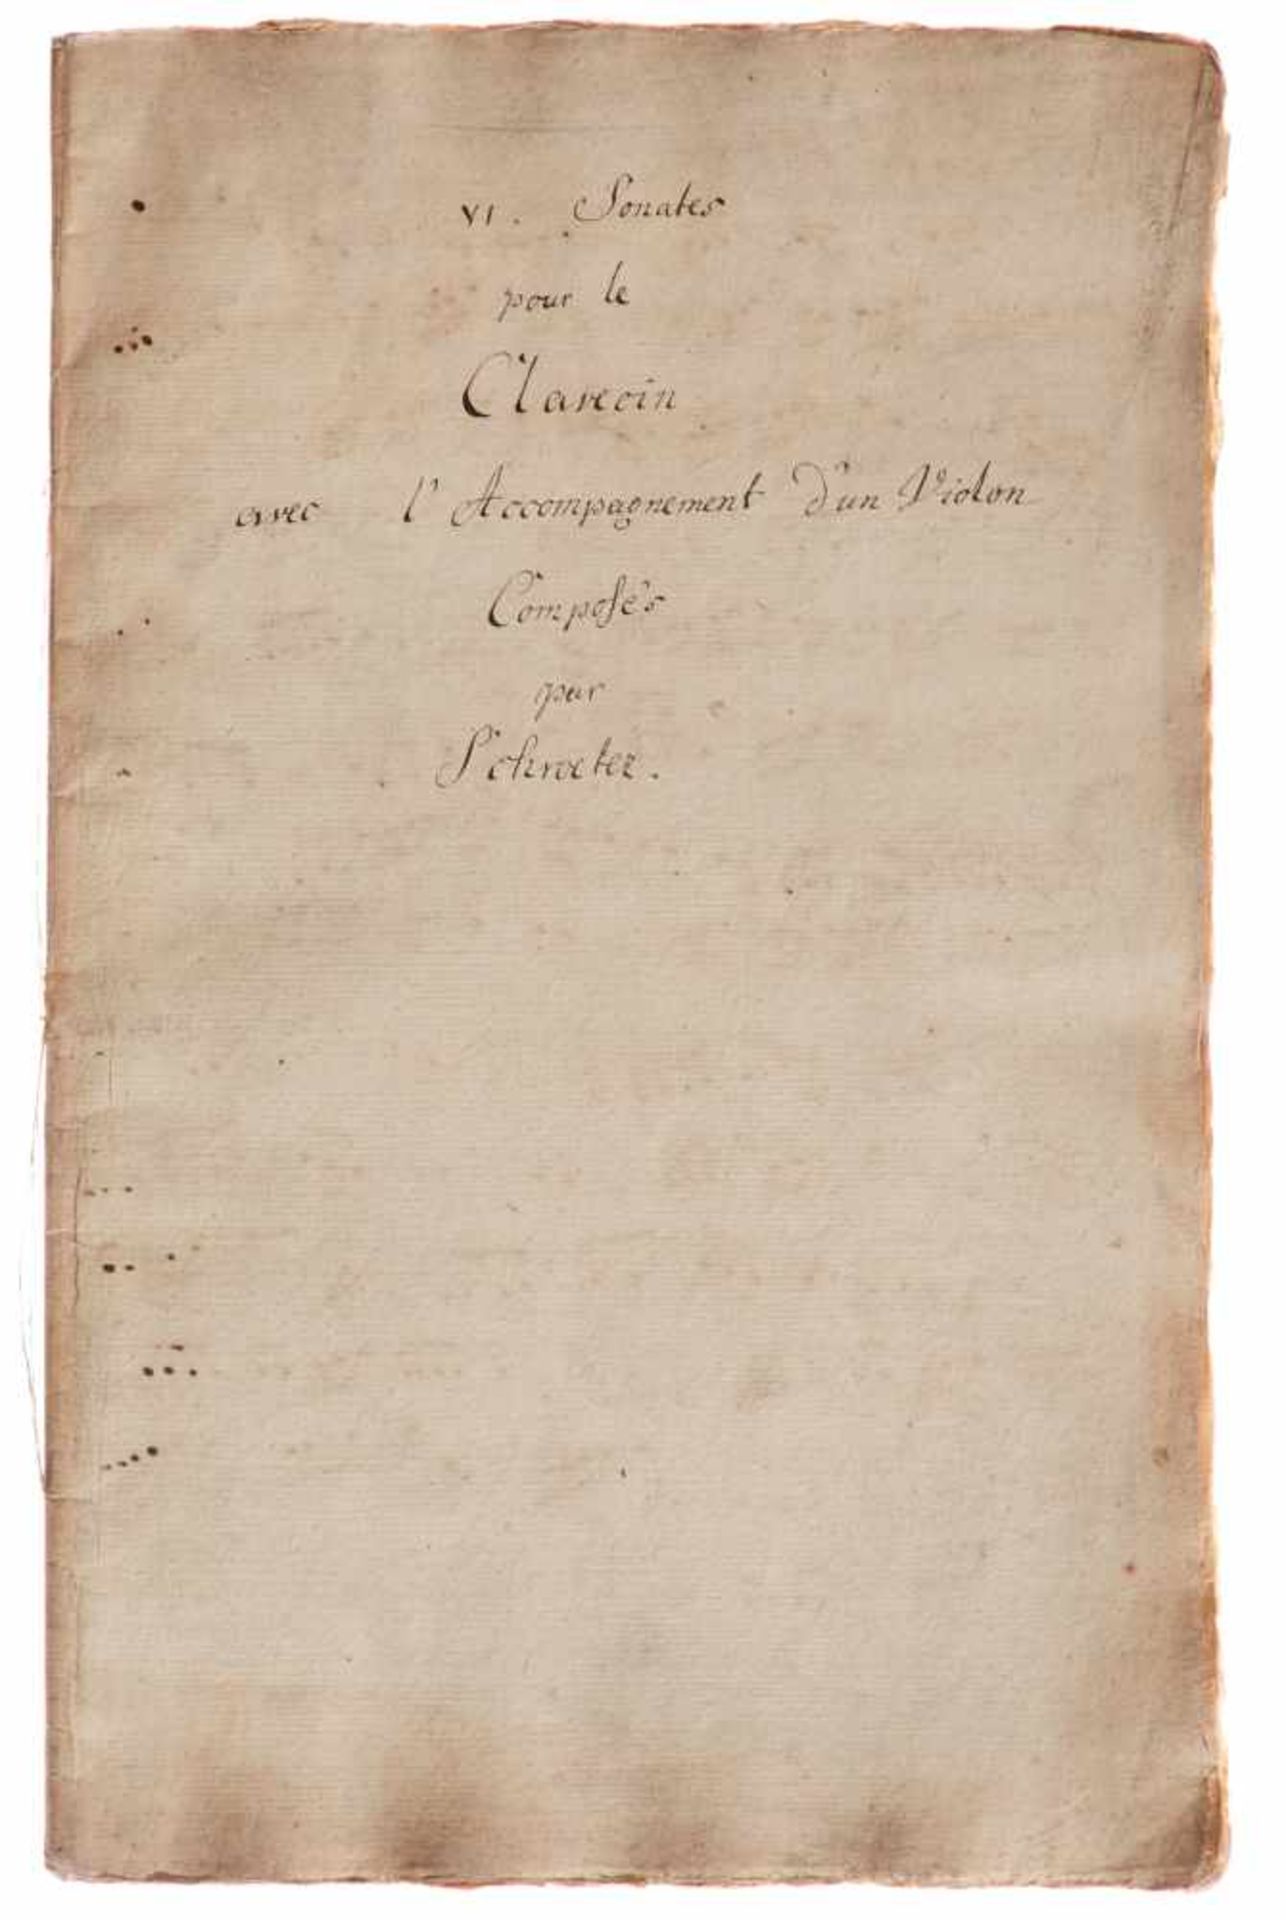 VI. Sonates
pour le
Clavecin
avec l'Accompagnement d'un Violon
Composés
par
Schroeter.